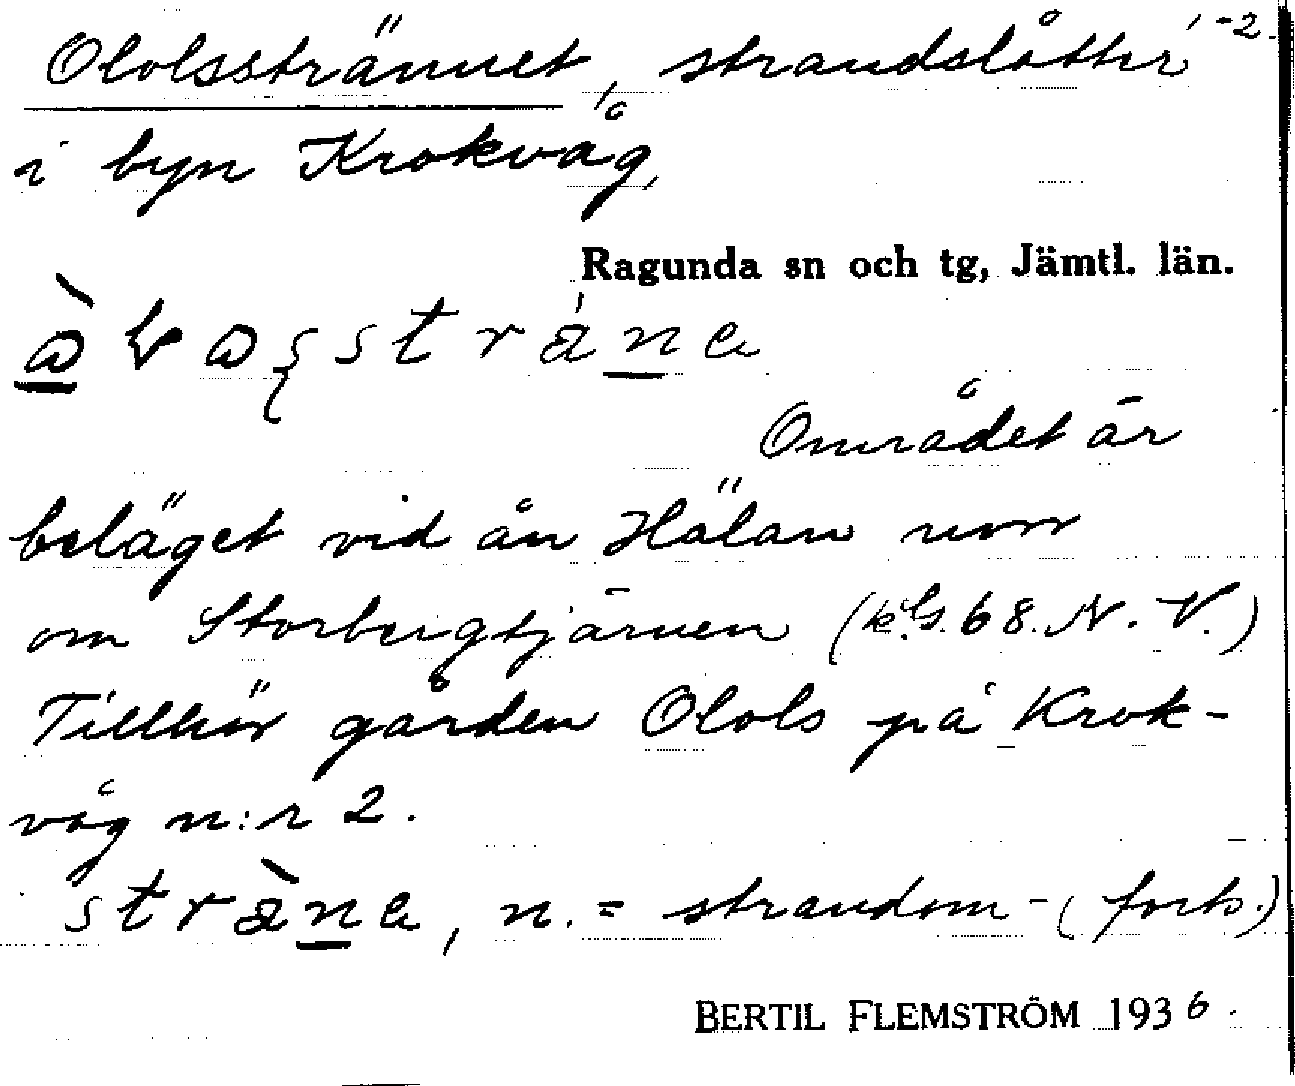 Ololsstrännet, strandslåtter 1-2.
i byn Krokvåg,
Ragunda sn och tg, Jämtl. län.
Området är
beläget vid ån Hälan norr
om Storbergtjärnen (k.bl. 68. N. V.)
Tillhör gården Olols på Krok-
våg n:r 2.
n. = strandom- (forts.)
BERTIL FLEMSTRÖM 1936.